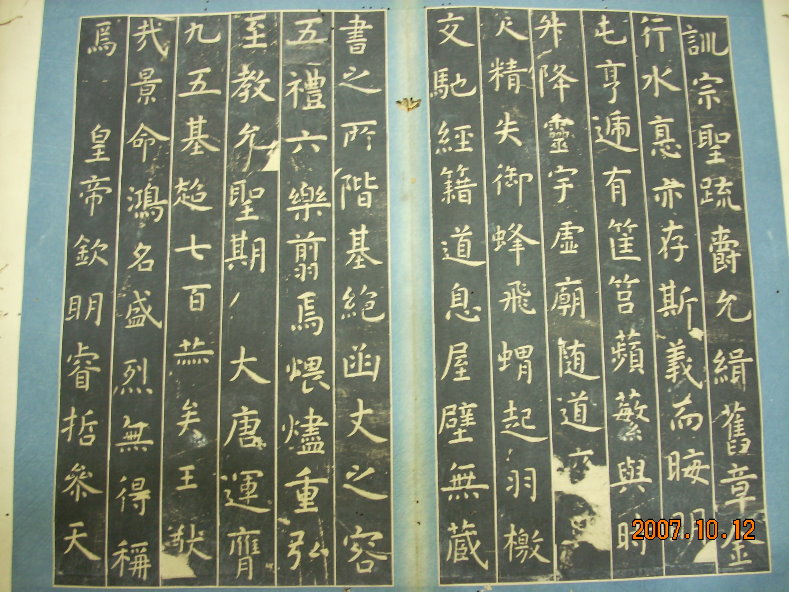 訓宗聖疏爵允緝舊章金
行水悳亦存斯義而晦明
屯亨遞有筐筥蘋蘩與時
升降靈宇虛廟随道
炎精失御蜂飛蝟起羽檄
交馳經籍道息屋壁無藏
書之所階基絕函丈之容
五禮六樂翦焉煨燼重弘
至教允聖期大唐運膺
九五基超七百赫矣王猷
哉景命鴻名盛烈無得稱
焉皇帝欽明睿哲參天
2007.10.12